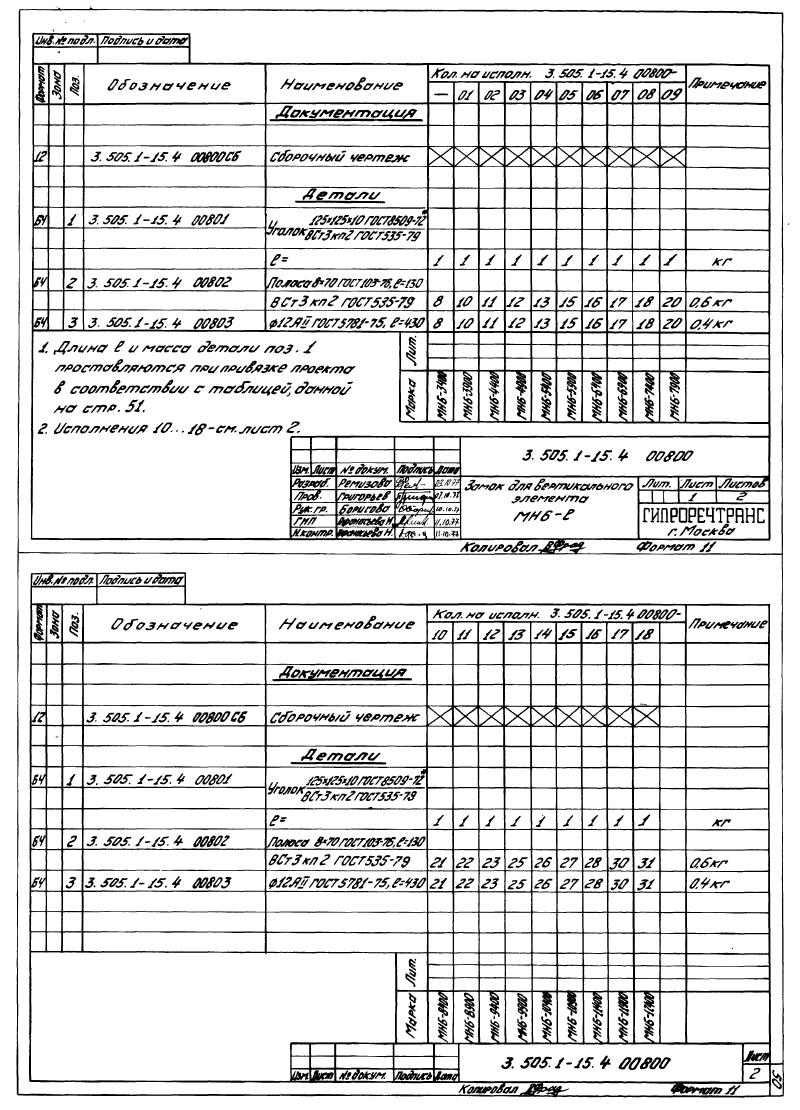 Инв. № подл. Подпись и дата
Формат Зона Поз. Обозначение Наименование Кол. на исполн. 3.505.1-15.4 00800- Примечание
— 01 02 03 04 05 06 07 08 09
Документация
12 3.505.1-15.4 00800СБ Сборочный чертеж
Детали
БЧ 1 3.505.1-15.4 00801 Уголок 125×125×10 ГОСТ 8509-72*
ВСт3кп2 ГОСТ 535-79
ℓ= 1 1 1 1 1 1 1 1 1 1 кг
БЧ 2 3.505.1-15.4 00802 Полоса 8×70 ГОСТ 103-76, ℓ=130
ВСт3кп2 ГОСТ 535-79 8 10 11 12 13 15 16 17 18 20 0,6 кг
БЧ 3 3.505.1-15.4 00803 ф12АII ГОСТ 5781-75, ℓ=430 8 10 11 12 13 15 16 17 18 20 0,4 кг
1. Длина ℓ и масса детали поз. 1
проставляются при привязке проекта
в соответствии с таблицей, данной
на стр. 51.
2. Исполнения 10...18-см. лист 2.
Лит.
Марка МНБ-3400 МНБ-3900 МНБ-4400 МНБ-4900 МНБ-5400 МНБ-5900 МНБ-6400 МНБ-6900 МНБ-7400 МНБ-7900
3.505.1-15.4 00800
Изм. Лист № докум. Подпись Дата
Разраб. Ремизова
Пров. Григорьев
Рук. гр. Боригова
ГИП Афанасьева Н. 11.10.77
Н.контр. Афанасьева Н. 11.10.77
Замок для вертикального
элемента
МНБ-ℓ
Лит. Лист Листов
1 2
ГИПРОРЕЧТРАНС
г. Москва
Копировал Формат 11
Инв. № подл. Подпись и дата
Формат Зона Поз. Обозначение Наименование Кол. на исполн. 3.505.1-15.4 00800- Примечание
10 11 12 13 14 15 16 17 18
Документация
12 3.505.1-15.4 00800СБ Сборочный чертеж
Детали
БЧ 1 3.505.1-15.4 00801 Уголок 125×125×10 ГОСТ 8509-72*
ВСт3кп2 ГОСТ 535-79
ℓ= 1 1 1 1 1 1 1 1 1 кг
БЧ 2 3.505.1-15.4 00802 Полоса 8×70 ГОСТ 103-76, ℓ=130
ВСт3кп2 ГОСТ 535-79 21 22 23 25 26 27 28 30 31 0,6 кг
БЧ 3 3.505.1-15.4 00803 ф12АII ГОСТ 5781-75, ℓ=430 21 22 23 25 26 27 28 30 31 0,4 кг
Лит.
Марка МНБ-8400 МНБ-8900 МНБ-9400 МНБ-9900 МНБ-10400 МНБ-10900 МНБ-11400 МНБ-11900 МНБ-12400
Изм. Лист № докум. Подпись Дата
3.505.1-15.4 00800
Лист
2
Копировал Формат 11
50